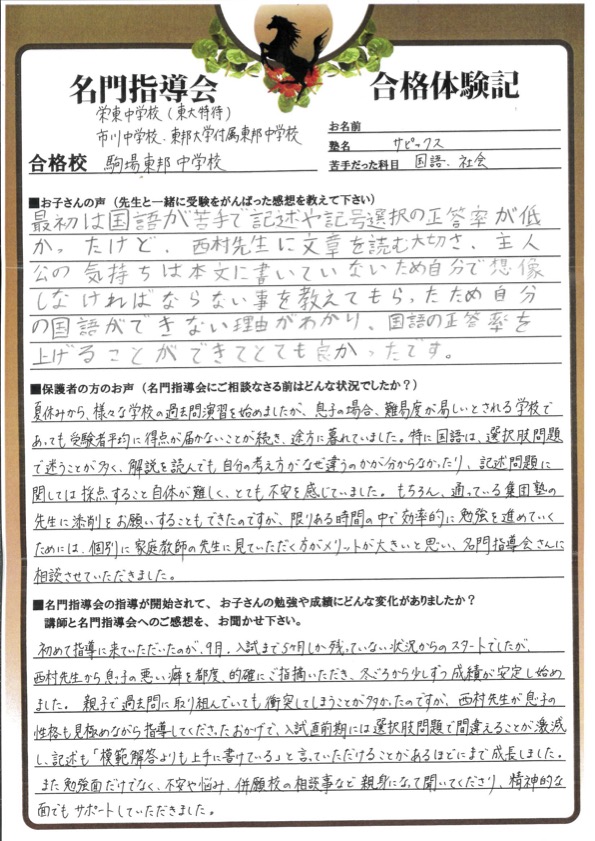 名門指導会
合格体験記
栄東中学校(東大特待)
市川中学校、東邦大学付属東邦中学校
合格校 駒場東邦中学校
お名前
塾名 サピックス
苦手だった科目 国語、社会
■お子さんの声(先生と一緒に受験をがんばった感想を教えて下さい)
最初は国語が苦手で記述や記号選択の正答率が低
かったけど、西村先生に文章を読む大切さ、主人
公の気持ちは本文に書いていないため自分で想像
しなければならない事を教えてもらったため自分
の国語ができない理由がわかり、国語の正答率を
上げることができてとても良かったです。
■保護者の方のお声(名門指導会にご相談なさる前はどんな状況でしたか?)
夏休みから、様々な学校の過去問演習を始めましたが、息子の場合、難易度が易しいとされる学校で
あっても受験者平均に得点が届かないことが続き、途方に暮れていました。特に国語は、選択肢問題
で迷うことが多く、解説を読んでも自分の考え方がなぜ違うのかが分からなかったり、記述問題に
関しては採点すること自体が難しく、とても不安を感じていました。もちろん、通っている集団塾の
先生に添削をお願いすることもできたのですが、限りある時間の中で効率的に勉強を進めていく
ためには、個別に家庭教師の先生に見ていただく方がメリットが大きいと思い、名門指導会さんに
相談させていただきました。
■名門指導会の指導が開始されて、お子さんの勉強や成績にどんな変化がありましたか?
講師と名門指導会へのご感想を、お聞かせ下さい。
初めて指導に来ていただいたのが、9月。入試まで5ヶ月しか残っていない状況からのスタートでしたが、
西村先生から息子の悪い癖を都度、的確にご指摘いただき、冬ごろから少しずつ成績が安定し始め
ました。親子で過去問に取り組んでいても衝突してしまうことが多かったのですが、西村先生が息子の
性格も見極めながら指導してくださったおかげで、入試直前期には選択肢問題で間違えることが激減
し、記述も「模範解答よりも上手に書けている」と言っていただけることがあるほどにまで成長しました。
また勉強面だけでなく、不安や悩み、併願校の相談事など親身になって聞いてくださり、精神的な
面でもサポートしていただきました。